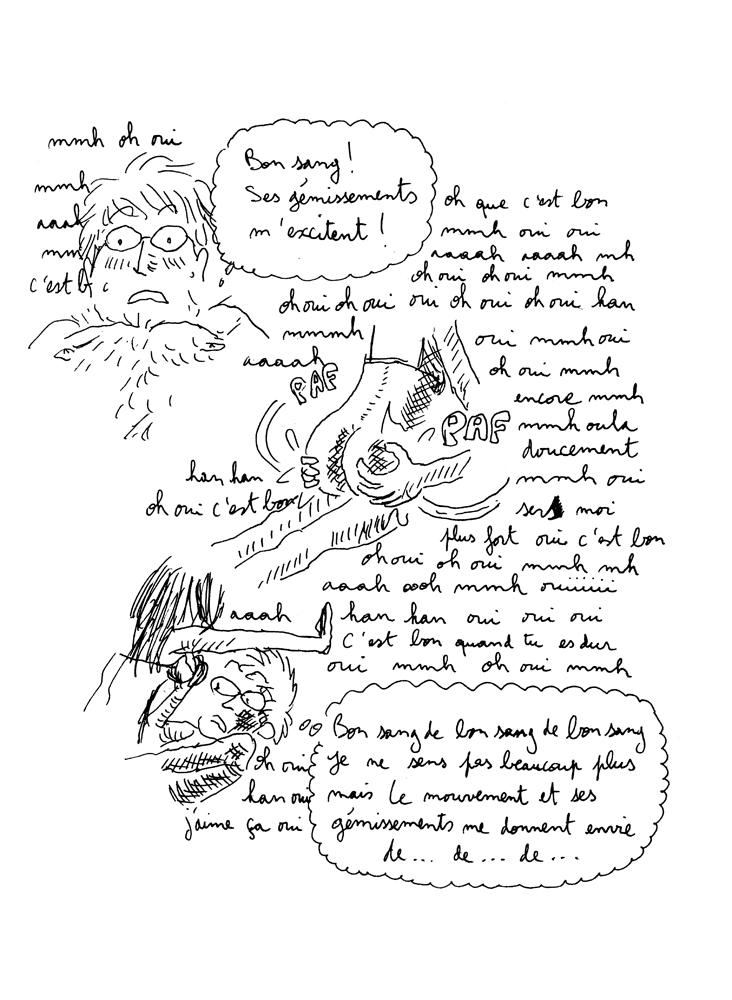 mmh oh oui
mmh
aaah
mm
c'est b
Bon sang !
Ses gémissements
m'excitent !
oh que c'est bon
mmh oui oui
aaaah aaaah mh
oh oui oh oui mmh
oh oui oh oui oui oh oui oh oui han
mmmh
oui mmh oui
aaaah
oh oui mmh
PAF
encore mmh
PAF
mmh oula
doucement
han han
mmh oui
oh oui c'est bon
moi
plus fort oui c'est bon
oh oui oh oui mmmh mh
aaaah ooh mmh ouiiiiii
aaah
han han oui oui oui
c'est bon quand tu es dur
oui mmh oh oui mmh
Bon sang de bon sang de bon sang
je ne sens pas beaucoup plus
mais le mouvement et ses
gémissements me donnent envie
de... de... de...
oh oui
han oui
j'aime ça oui